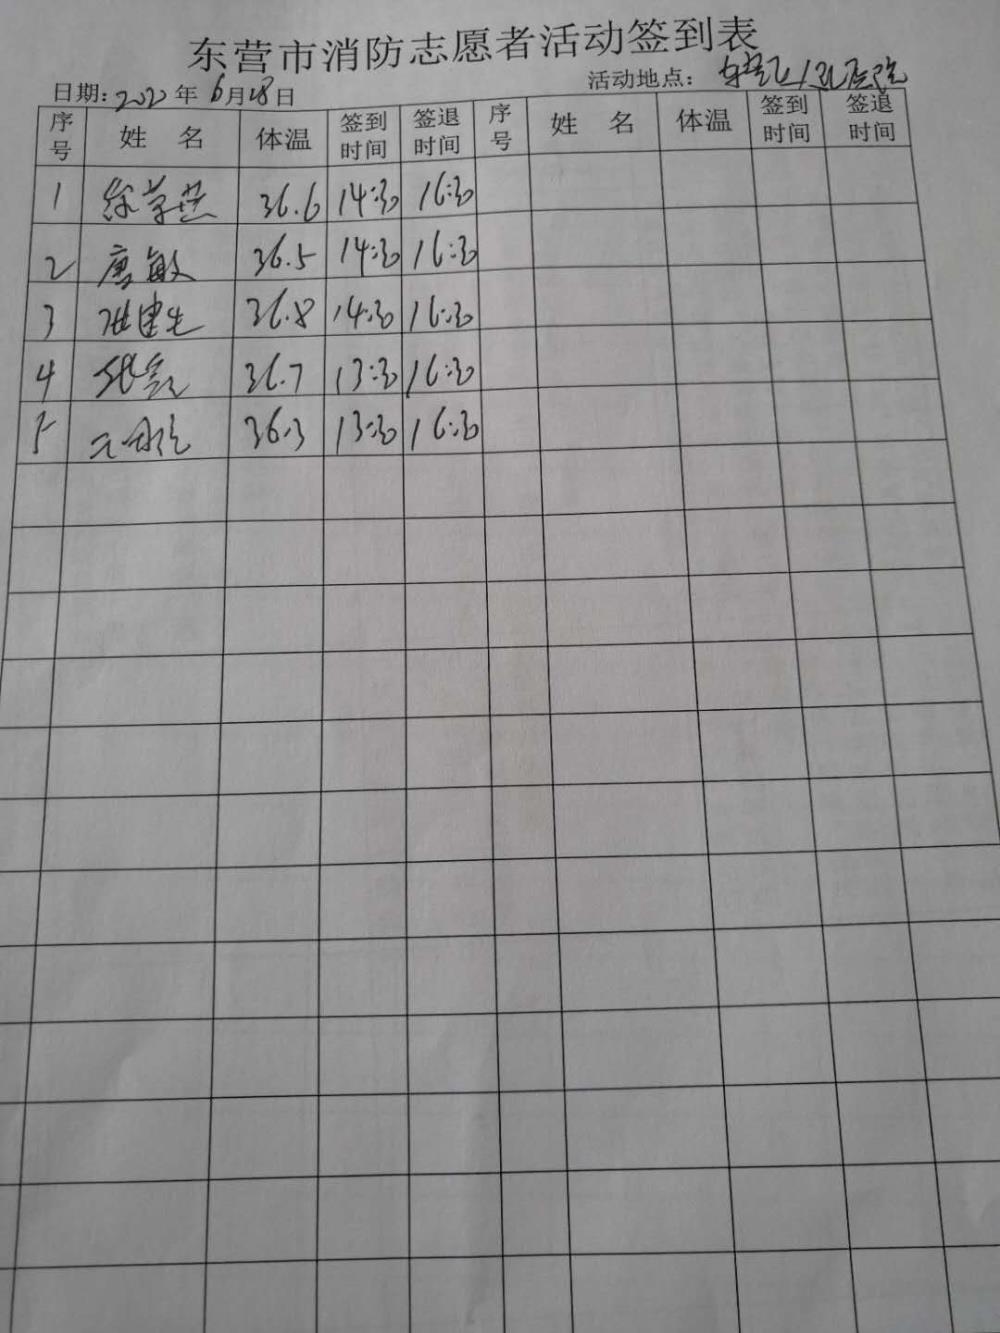 东营市消防志愿者活动签到表
日期: 年6月28日 活动地点: 东营区人民医院
序号 姓名 体温 签到时间 签退时间 序号 姓名 体温 签到时间 签退时间
1 36.6 14:30 16:30
2 唐敏 36.5 14:30 16:30
3 张建生 36.8 14:30 16:30
4 36.7 13:30 16:30
5 36.3 13:30 16:30